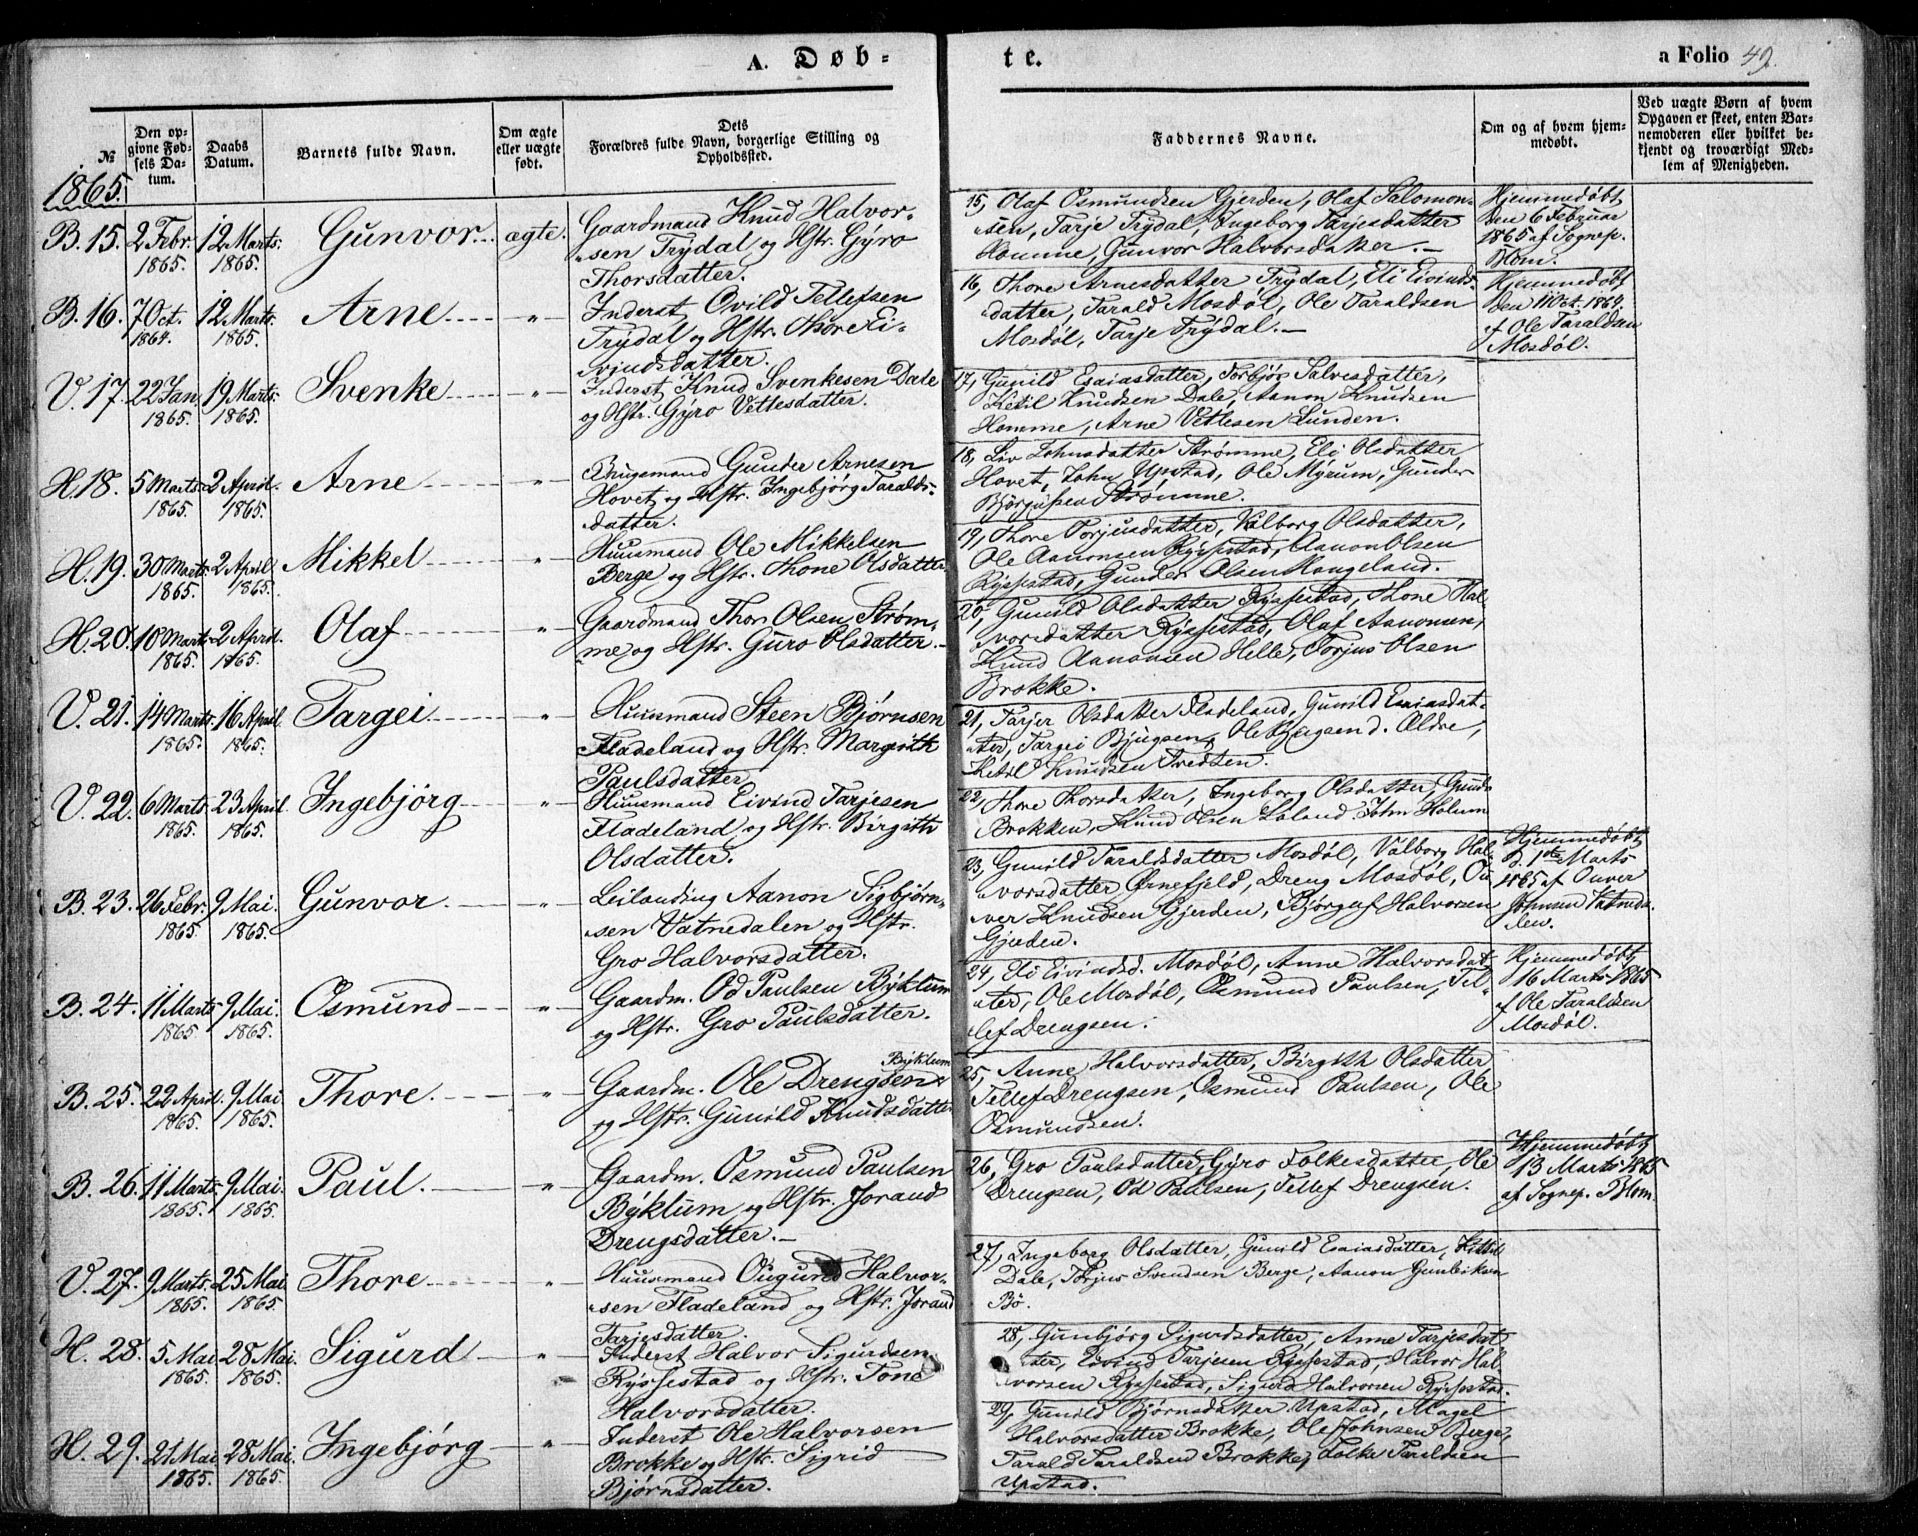 A. Døb-
te.
a Folio 49.
№
Den opgivne Fødsels Datum.
Daabs Datum.
Barnets fulde Navn.
Om ægte eller uægte født.
Dets Forældres fulde Navn, borgerlige Stilling og Opholdsted.
Faddernes Navne.
Om og af hvem hjemmedøbt.
Ved uægte Børn af hvem Opgaven er skeet, enten Barnemoderen eller hvilket bekjendt og troværdigt Medlem af Menigheden.
1865.
B. 15. 2 Febr. 1865. 12 Marts 1865. Gunvor ægte.
Gaardmand Knud Halvor-
sen Trydal og Hstr. Gyro
Thorsdatter.
15, Olaf Osmundsen Gjerden, Olaf Salomon-
sen, Tarje Trydal, Ingeborg Tarjesdatter
Homme, Gunvor Halvorsdatter.
Hjemmedøbt
den 6 Februar
1865 af Sognep.
Blom.
B. 16. 7 Oct. 1864. 12 Marts 1865. Arne "
Inderst Ovild Tellefsen
Trydal og Hstr. Thore Ei-
vindsdatter.
16, Thore Arnesdatter Trydal, Eli Eivinds-
datter, Tarald Mosdøl, Ole Taraldsen
Mosdøl, Tarje Trydal.
Hjemmedøbt
den 11 Oct. 1864.
af Ole Taraldsen
Mosdøl.
V. 17. 22 Jan. 1865. 19 Marts 1865. Svenke "
Inderst Knud Svenkesen Dale
og Hstr. Gyro Vettesdatter.
17, Gunild Esaiasdatter, Torbjør Salvesdatter,
Ketil Knudsen Dale, Aanon Knudsen
Homme, Arne Vetlesen Lunden.
H. 18. 5 Marts 1865. 2 April 1865. Arne "
Brugsmand Gunder Arnesen
Hovet og Hstr. Ingebjørg Taralds-
datter.
18, Liv Johnsdatter Strømme, Eli Olsdatter
Hovet, John Upstad, Ole Myrum, Gunder
Bjørgufsen Strømme.
H. 19. 30 Marts 1865. 2 April 1865. Mikkel "
Huusmand Ole Mikkelsen
Berge og Hstr. Thone Olsdatter
19, Thore Torjusdatter, Valborg Olsdatter,
Ole Aanonsen Rysstad, Aanon Olsen
Rysstad, Gunder Olsen Haugeland.
H. 20. 10 Marts 1865. 2 April 1865. Olaf "
Gaardmand Thor Olsen Strøm-
me og Hstr. Guro Olsdatter.
20, Gunild Olsdatter Rysstad, Thone Hal-
vorsdatter Ryssestad, Olaf Aanonsen,
Knud Aanonsen Helle, Torjus Olsen
Brokke.
V. 21. 14 Marts 1865. 16 April 1865. Targei "
Huusmand Steen Bjørnsen
Fladeland og Hstr. Margith
Paulsdatter
21, Tarjer Olsdatter Fladeland, Gunild Esaiasdat-
ter, Targei Bjugsen, Ole Bjugsen d. Ældre,
Ketil Knudsen Tvedten.
V. 22. 6 Marts 1865. 23 April 1865. Ingebjørg "
Huusmand Eivind Tarjesen
Fladeland og Hstr. Birgith
Olsdatter.
22, Thore Thorsdatter, Ingeborg Olsdatter,
Brokken, Knud Olsen Løland. John Holum
B. 23. 26 Febr. 1865. 9 Mai. 1865. Gunvor "
Leilending Aanon Sigbjørn-
sen Vatnedalen og Hstr.
Gro Halvorsdatter.
23, Gunild Taraldsdatter Mosdøl, Valborg Hal-
vorsdatter Ørnefjeld, Dreng Mosdøl, Ou-
ver Knudsen Gjerden, Bjørguf Halvorsen
Gjerden.
Hjemmedøbt
d. 1ste Marts
1865 af Ouver
Johnsen Vatneda-
len.
B. 24. 11 Marts 1865. 9 Mai. 1865. Osmund "
Gaardm. Od Paulsen Byklum
og Hstr. Gro Paulsdatter.
24, Eli Eivindsd. Mosdøl, Anne Halvorsdat-
ter, Ole Mosdøl, Osmund Paulsen, Tel-
lef Drengsen.
Hjemmedøbt
16 Marts 1865
af Ole Taraldsen
Mosdøl.
B. 25. 22 April 1865. 9 Mai 1865. Thore "
Gaardm. Ole Drengsen Byklum
og Hstr. Gunild Knudsdatter
25, Anne Halvorsdatter, Birgith Olsdatter
Tellef Drengsen, Osmund Paulsen, Ole
Osmundsen.
B. 26. 11 Marts 1865. 9 Mai. 1865. Paul "
Gaardm. Osmund Paulsen
Byklum og Hstr. Jorand
Drengsdatter.
26, Gro Paulsdatter, Gyro Folkesdatter, Ole
Drengsen, Od Paulsen, Tellef Drengsen.
Hjemmedøbt
13 Marts 1865
af Sognep. Blom.
V. 27. 9 Marts 1865. 25 Mai 1865. Thore "
Huusmand Ougund Halvor-
sen Fladeland og Hstr. Jorand
Tarjesdatter.
27, Ingeborg Olsdatter, Gunild Esaiasdatter, Kittil
Dale, Torjus Svendsen Berge, Aanon Gunleiksen
Bø.
H. 28. 5 Mai 1865. 28 Mai. 1865. Sigurd "
Inderst Halvor Sigurdsen
Ryssestad og Hstr. Tone
Halvorsdatter.
28, Gunbjørg Sigurdsdatter, Anne Tarjesdat-
ter, Eivind Tarjesen Ryssestad, Halvor Hal-
vorsen Ryssestad, Sigurd Halvorsen Ryssestad.
H. 29. 21 Mai 1865. 28 Mai 1865. Ingebjørg "
Inderst Ole Halvorsen
Brokke og Hstr. Sigrid
Bjørnsdatter.
29, Gunild Bjørnsdatter Upstad, Margel
Halvorsdatter Brokke, Ole Johnsen Berge,
Tarald Taraldsen Brokke, Folke Taraldsen
Upstad.